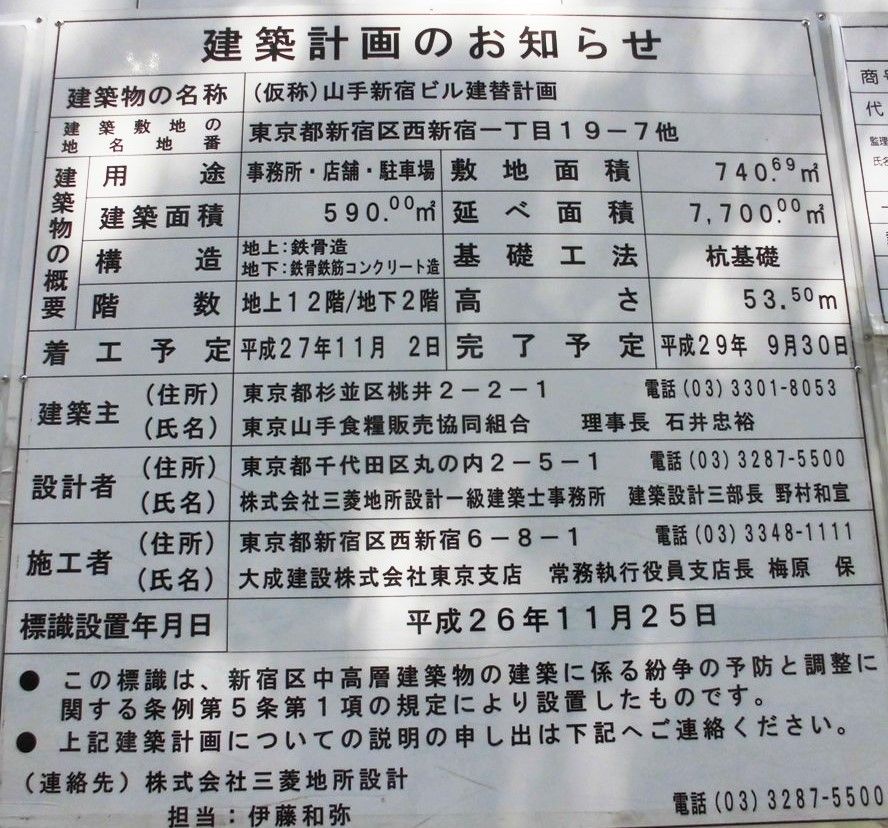 建築計画のお知らせ
建築物の名称 (仮称)山手新宿ビル建替計画
建築敷地の地名地番 東京都新宿区西新宿一丁目19-7他
建築物の概要
用途 事務所・店舗・駐車場 敷地面積 740.69㎡
建築面積 590.00㎡ 延べ面積 7,700.00㎡
構造 地上:鉄骨造 地下:鉄骨鉄筋コンクリート造 基礎工法 杭基礎
階数 地上12階/地下2階 高さ 53.50m
着工予定 平成27年11月 2日 完了予定 平成29年 9月30日
建築主 (住所) 東京都杉並区桃井2-2-1 電話(03)3301-8053
(氏名) 東京山手食糧販売協同組合 理事長 石井忠裕
設計者 (住所) 東京都千代田区丸の内2-5-1 電話(03)3287-5500
(氏名) 株式会社三菱地所設計一級建築士事務所 建築設計三部長 野村和宣
施工者 (住所) 東京都新宿区西新宿6-8-1 電話(03)3348-1111
(氏名) 大成建設株式会社東京支店 常務執行役員支店長 梅原 保
標識設置年月日 平成26年11月25日
● この標識は、新宿区中高層建築物の建築に係る紛争の予防と調整に
関する条例第5条第1項の規定により設置したものです。
● 上記建築計画についての説明の申し出は下記へご連絡ください。
(連絡先)株式会社三菱地所設計
担当:伊藤和弥 電話(03)3287-5500
商号
代
監理
氏名